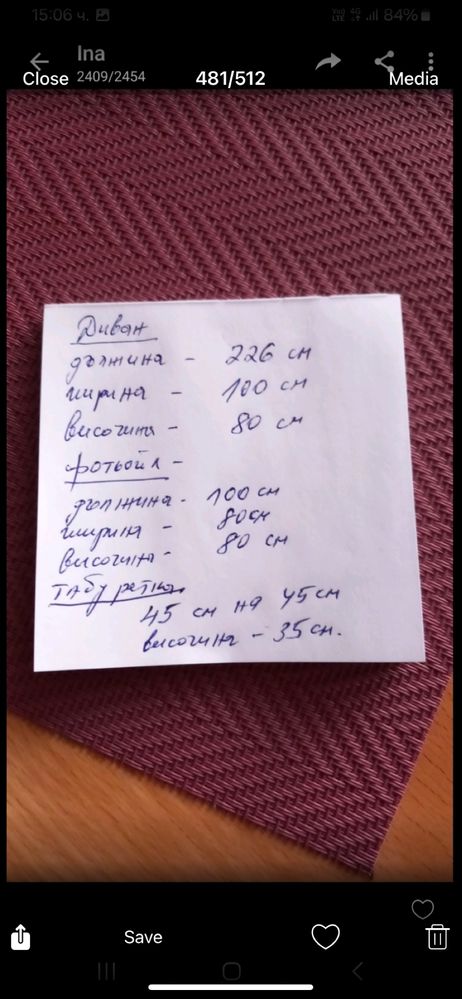 15:06 ч.
Vo) 4G LTE 84%
Ina
Close 2409/2454 481/512 Media
Диван
дължина - 226 см
ширина - 100 см
височина - 80 см
фотьойл -
дължина - 100 см
ширина - 80см
височина - 80 см
табуретка
45 см на 45 см
височина - 35 см.
Save